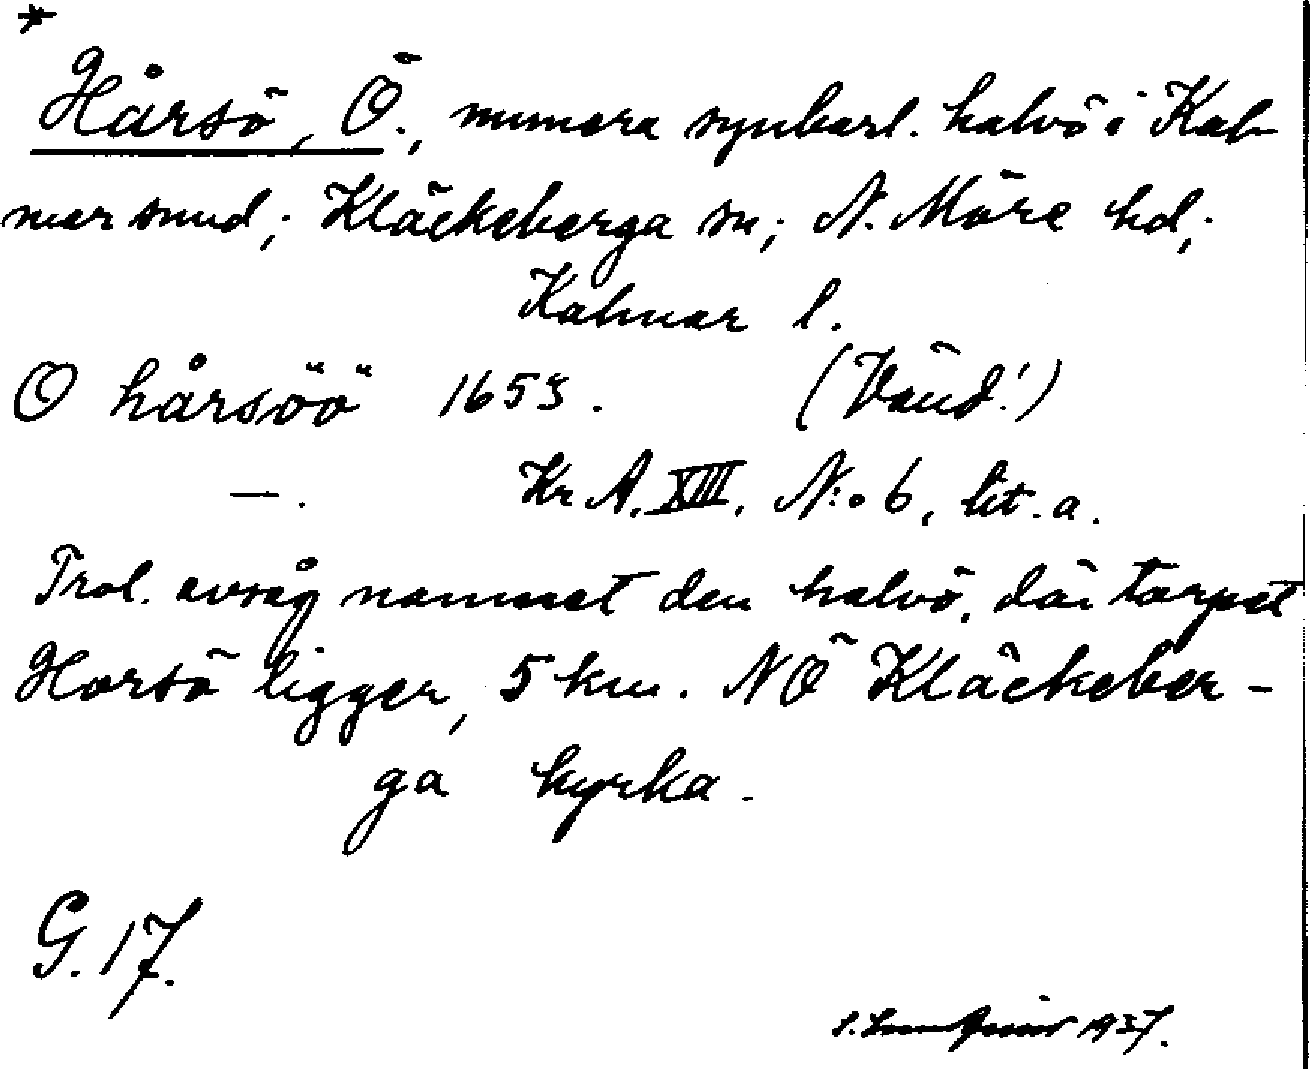 *
Hårsö, Ö., numera synbarl. halvö i Kal-
mar sund; Kläckeberga sn; N. Möre hd;
Kalmar l.
O hårsöö 1653. (Vänd!)
—. Kr A. XIII, N:o 6, lit. a.
Trol. avsåg namnet den halvö, där torpet
Horsö ligger, 5 km. NÖ Kläckeber-
ga kyrka.
G. 17.
1937.